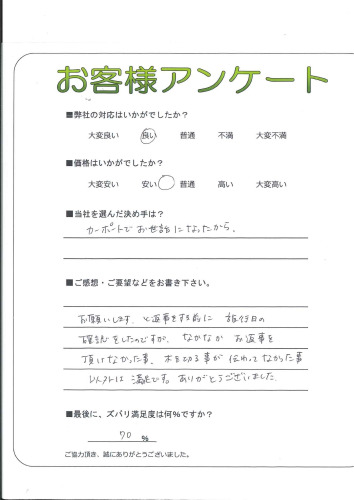 お客様アンケート
■弊社の対応はいかがでしたか?
大変良い 良い 普通 不満 大変不満
■価格はいかがでしたか?
大変安い 安い 普通 高い 大変高い
■当社を選んだ決め手は?
カーポートでお世話になったから。
■ご感想・ご要望などをお書き下さい。
お願いします。と返事をする前に 旅行日の
確認をしたのですが、なかなか お返事を
頂けなかった事、木を切る事が 伝わってなかった事
以外は 満足です。ありがとうございました。
■最後に、ズバリ満足度は何%ですか?
70 %
ご協力頂き、誠にありがとうございました。